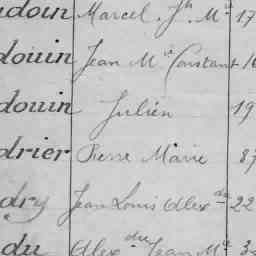 udoin Marcel Jh Mie 17
douin Jean Mie Constant 16
douin Julien 19
drier Pierre Marie 87
dry Jean Louis Alexdre 22
du Alexdre Jean Mie 3